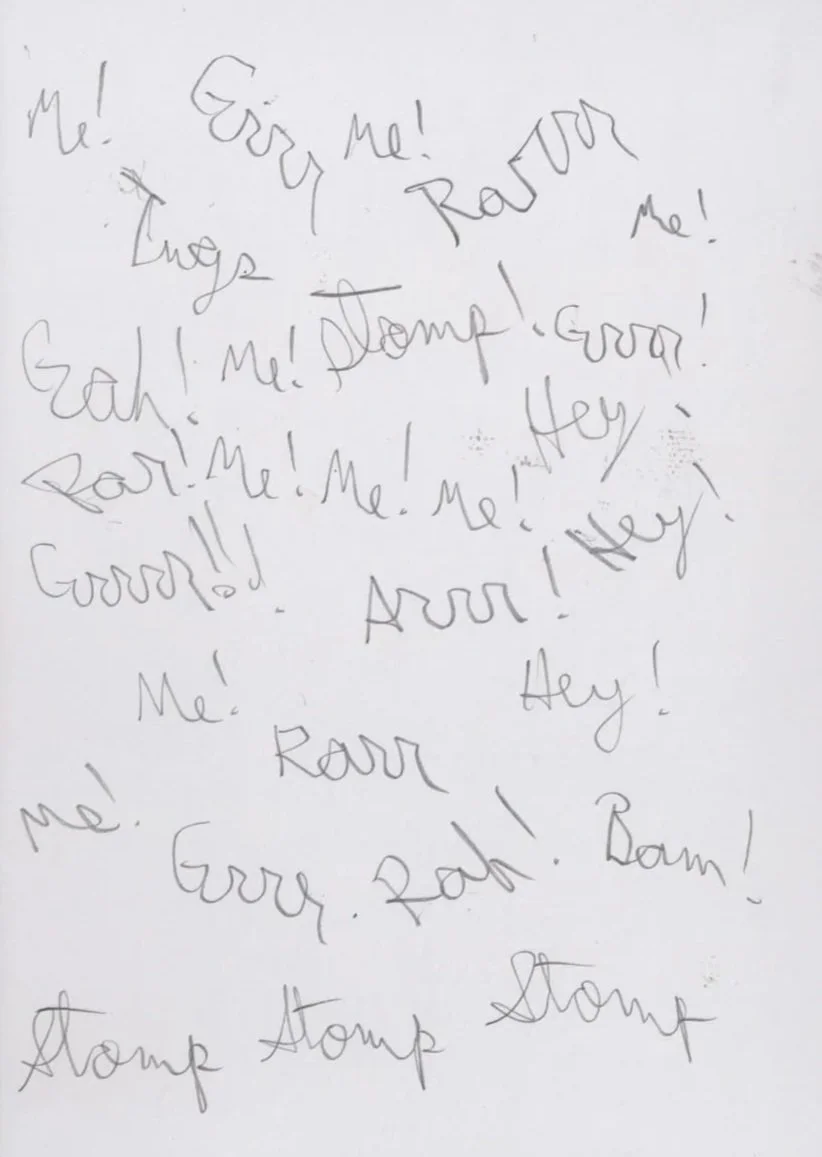 Me! Grrr Me! Rarrrr
Me!
Gah! Me! Stomp! Grrrr!
Hey!
Rar! Me! Me! Me!
Hey!
Grrrrr!!!
Arrrr!
Me! Hey!
Rarrr
Me!
Grrrr. Rah! Bam!
Stomp Stomp Stomp